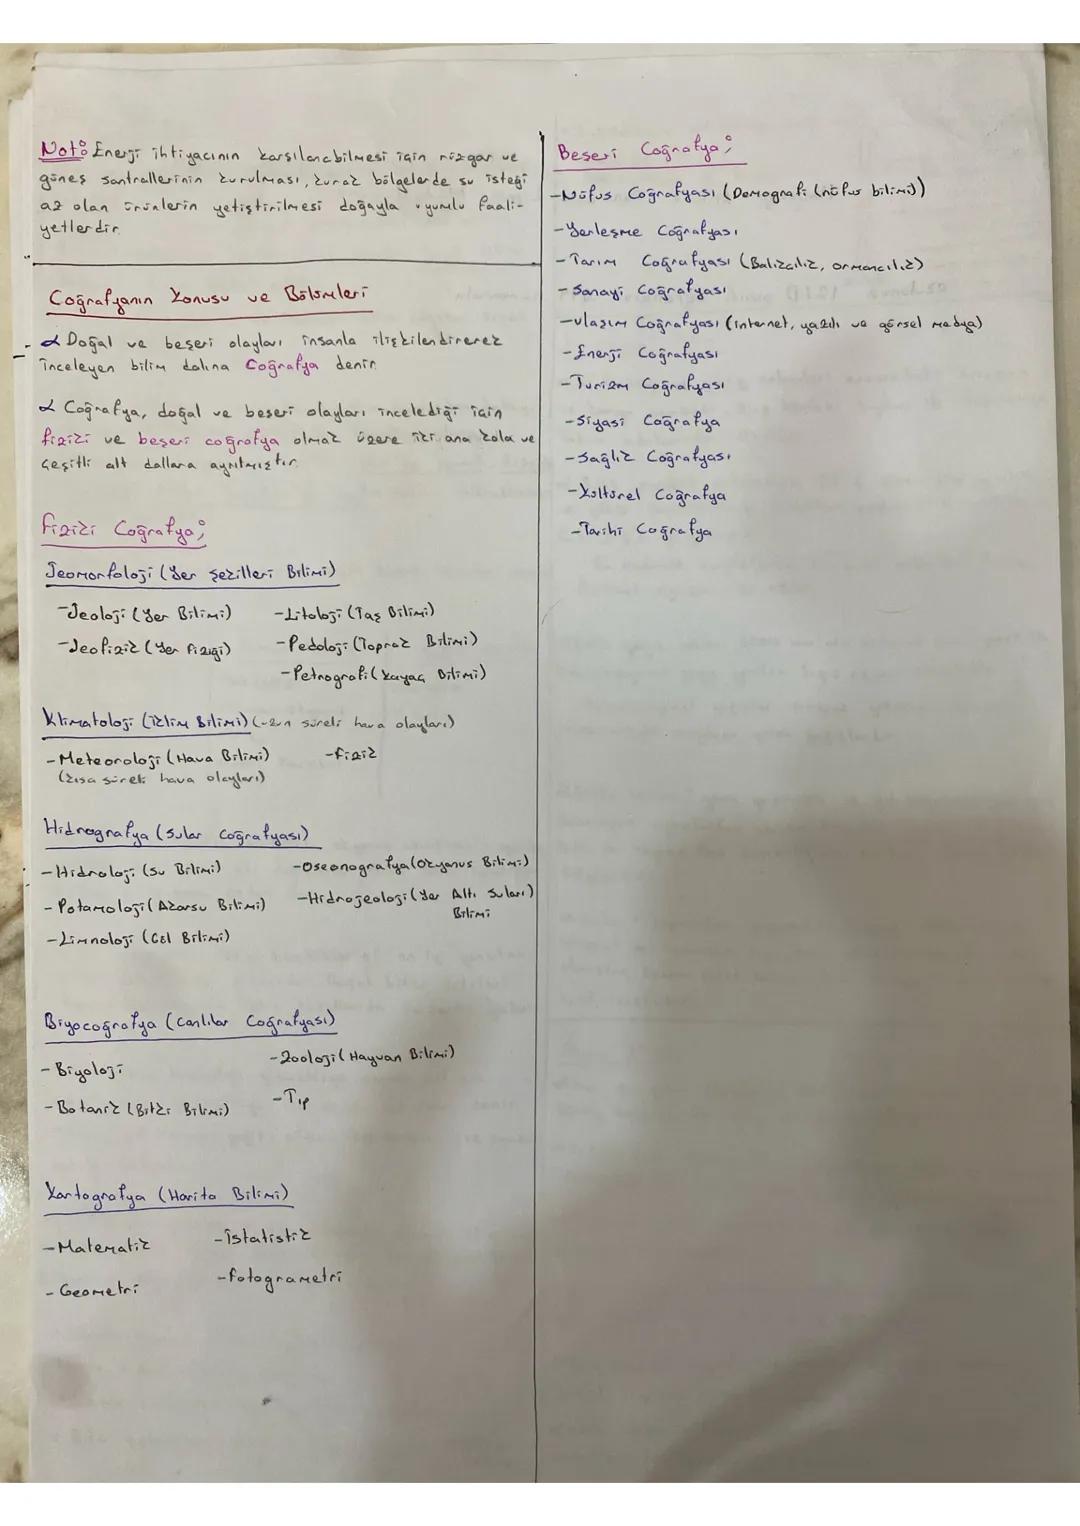 Not: Enerji ihtiyacının karşılanabilmesi için rüzgar ve
güneş santrallerinin kurulması, kurak bölgelerde su isteği
az olan ürünlerin yetiştirilmesi doğayla uyumlu faali-
yetlerdir.
Coğrafyanın Konusu ve Bölümleri
Doğal ve beşeri olayları insanla ilişkilendirerek
inceleyen bilim dalına Coğrafya denir.
Coğrafya, doğal ve beşeri olayları incelediği için
fiziki ve beşeri coğrafya olmak üzere iki ana kola ve
çeşitli alt dallara ayrılmıştır.
Fiziki Coğrafya;
Jeomorfoloji (Yer Şekilleri Bilimi)
-Jeoloji (Yer Bilimi) -Litoloji (Taş Bilimi)
-Jeofizik (Yer Fiziği) -Pedoloji (Toprak Bilimi)
-Petrografi (Kayaç Bilimi)
Klimatoloji (İklim Bilimi) (uzun süreli hava olayları)
-Meteoroloji (Hava Bilimi) -Fizik
(kısa süreli hava olayları)
Hidrografya (Sular Coğrafyası)
-Hidroloji (Su Bilimi) -Oseonografya (Okyanus Bilimi)
-Potamoloji (Akarsu Bilimi) -Hidrojeoloji (Yer Altı Suları)
Bilimi
-Limnoloji (Göl Bilimi)
Biyocoğrafya (Canlılar Coğrafyası)
-Biyoloji -Zooloji (Hayvan Bilimi)
-Botanik (Bitki Bilimi) -Tıp
Kartografya (Harita Bilimi)
-Matematik -İstatistik
-Geometri -Fotogrametri
Beşeri Coğrafya;
-Nüfus Coğrafyası (Demografi (nüfus bilimi))
-Yerleşme Coğrafyası
-Tarım Coğrafyası (Balıkçılık, ormancılık)
-Sanayi Coğrafyası
-Ulaşım Coğrafyası (internet, yazılı ve görsel medya)
-Enerji Coğrafyası
-Turizm Coğrafyası
-Siyasi Coğrafya
-Sağlık Coğrafyası
-Kültürel Coğrafya
-Tarihi Coğrafya